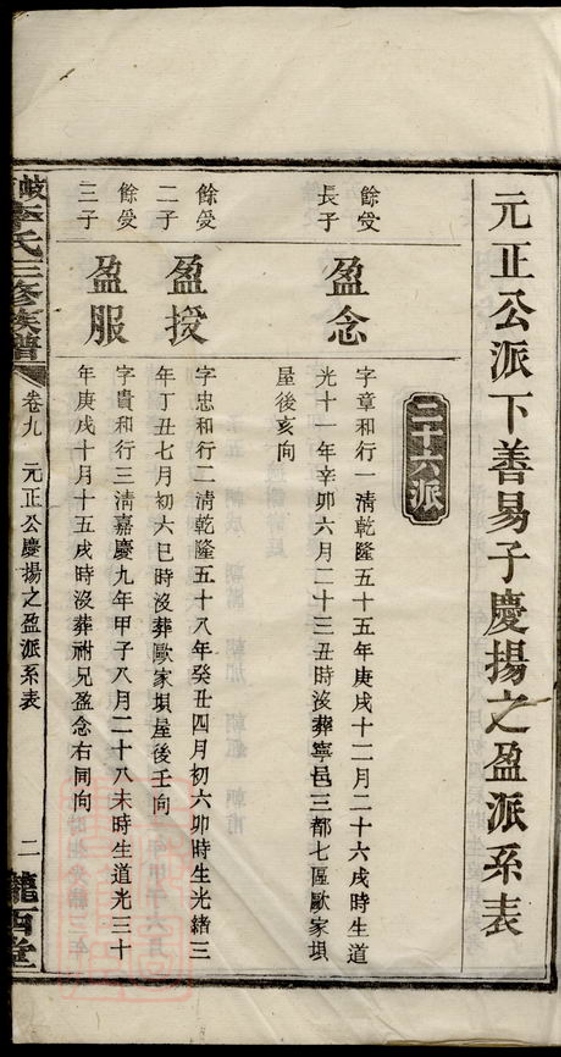 元正公派下善易子慶揚之盈派系表
二十六派
餘受
長子
盈念
字章和行一淸乾隆五十五年庚戌十二月二十六戌時生道
光十一年辛卯六月二十三丑時沒葬寧邑三都七區歐家垻
屋後亥向
餘受
二子
盈授
字忠和行二淸乾隆五十八年癸丑四月初六卯時生光緖三
年丁丑七月初六巳時沒葬歐家垻屋後壬向
餘受
三子
盈服
字貴和行三淸嘉慶九年甲子八月二十八未時生道光三十
年庚戌十月十五戌時沒葬祔兄盈念右同向
李氏三修族譜
卷九
元正公慶揚之盈派系表
二